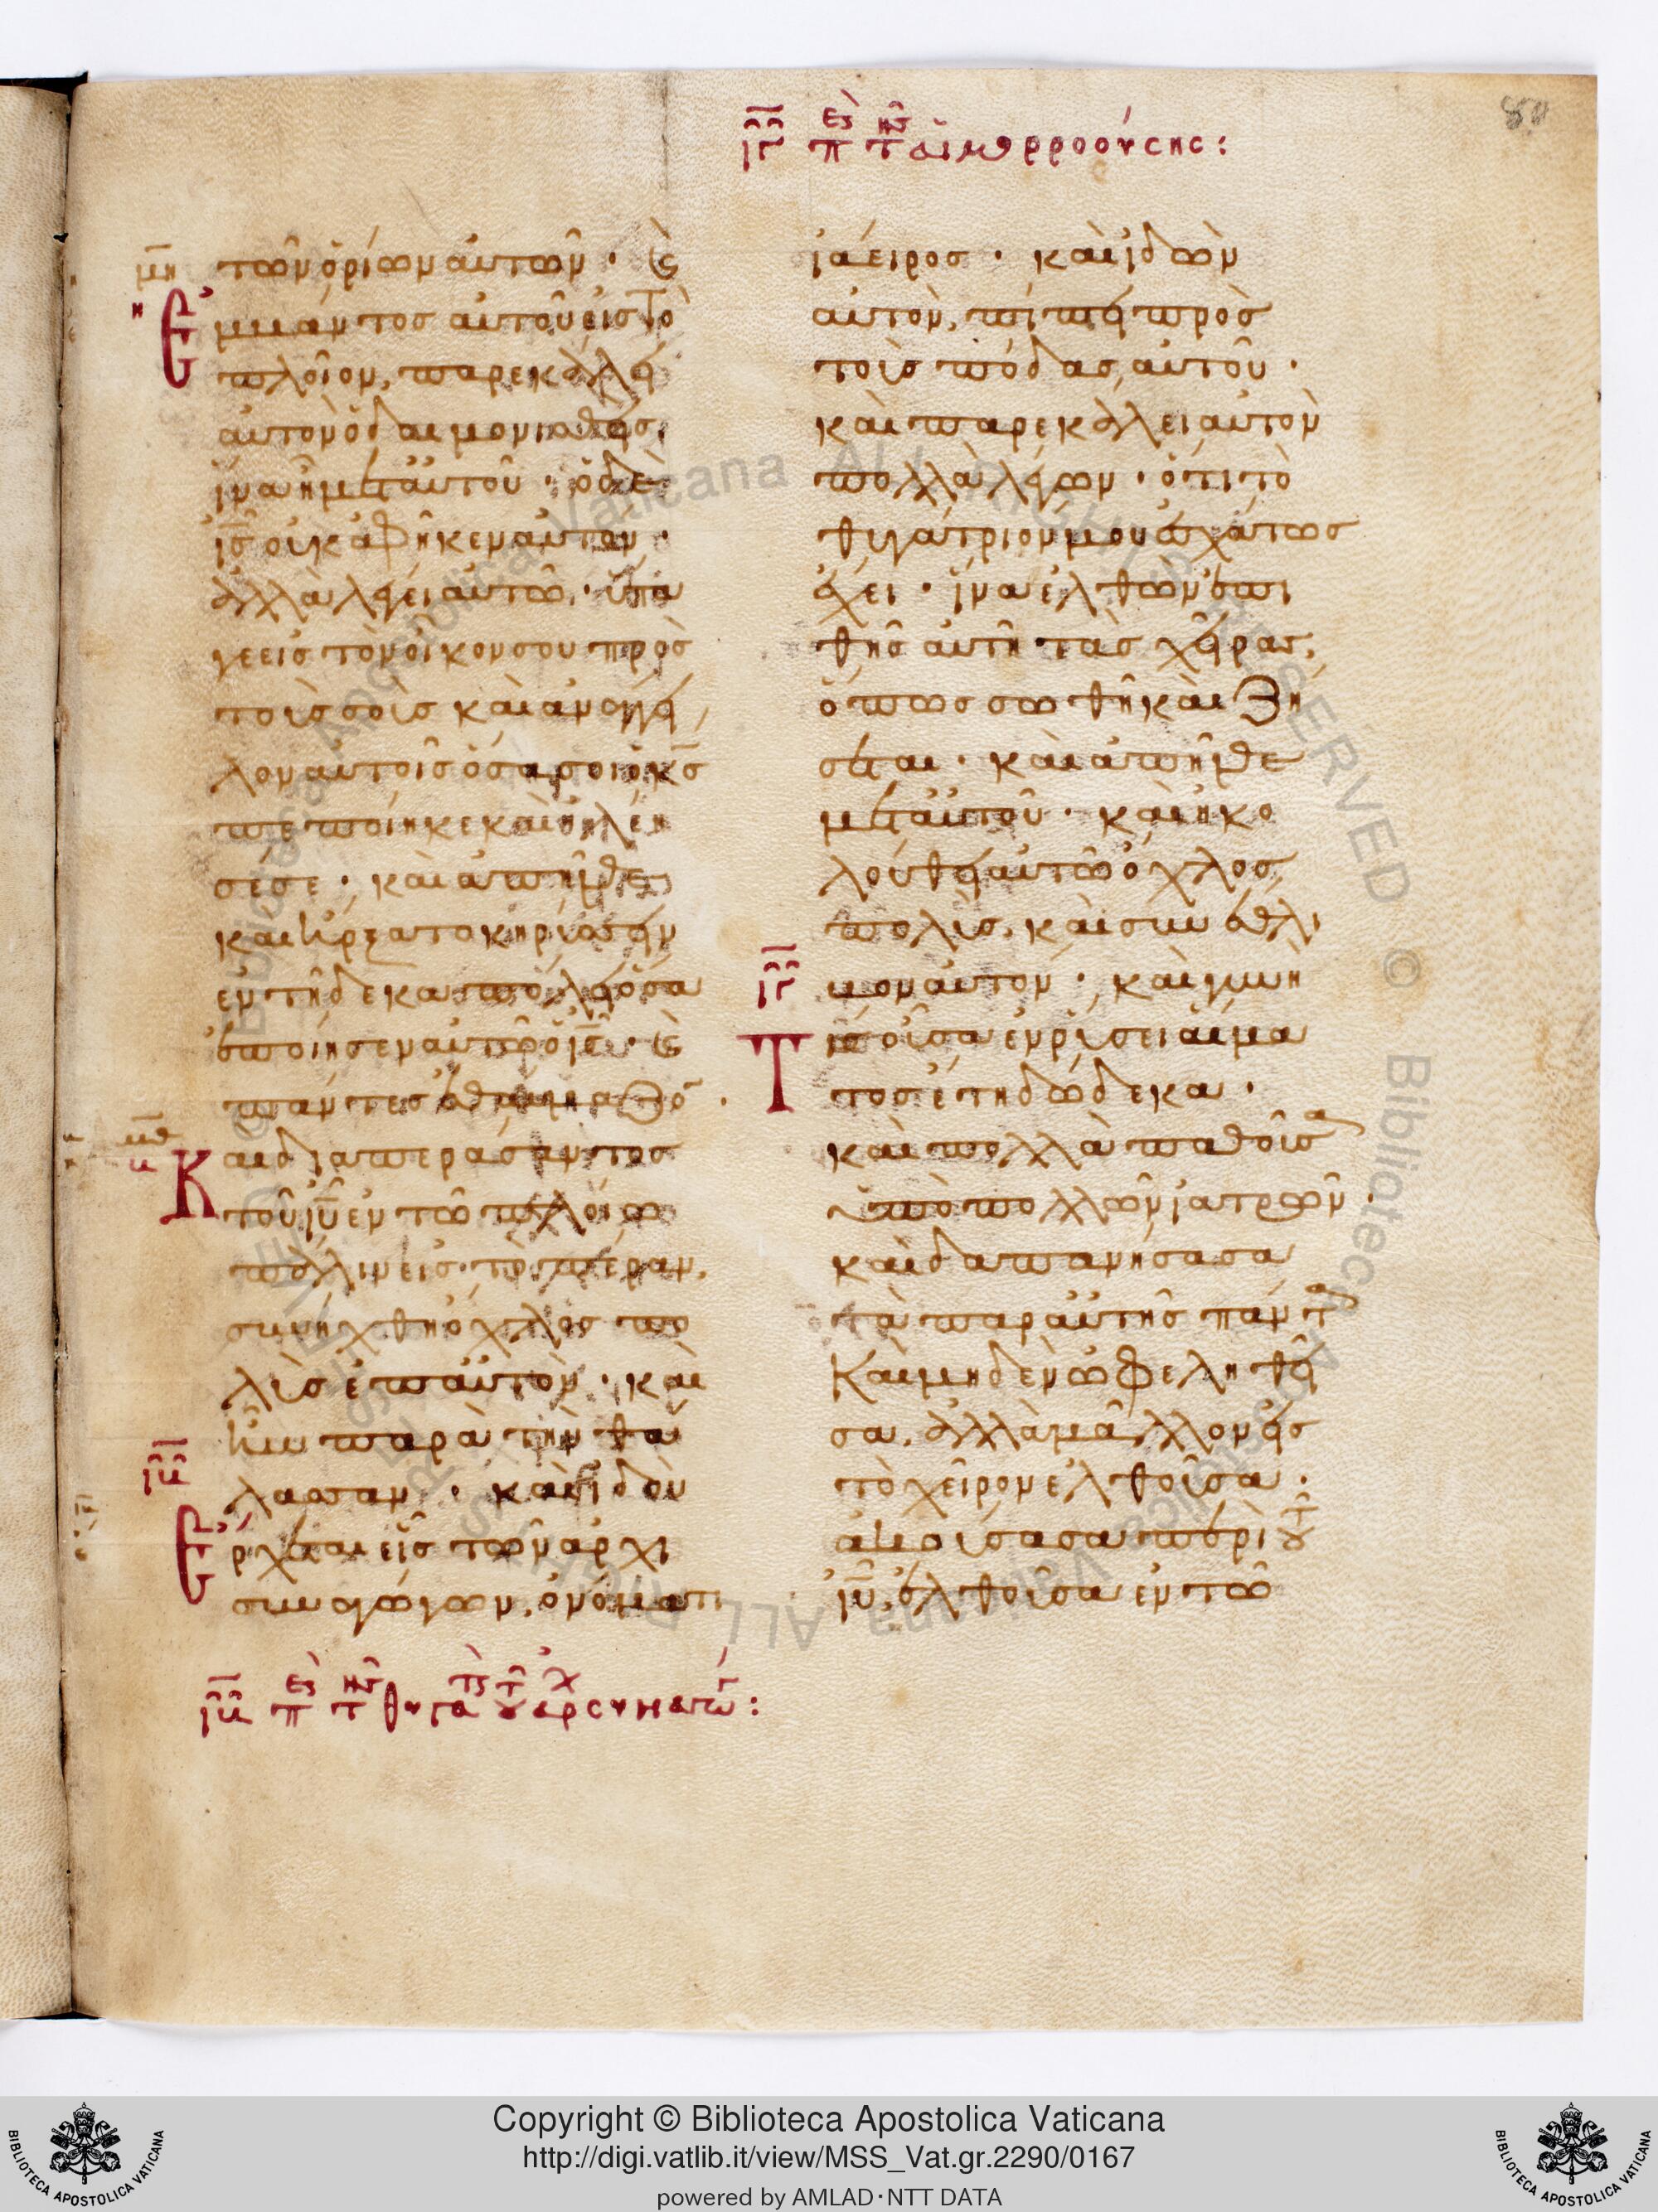 ιγ περὶ τῆς αἱμορροούσης:
80
μη τῶν ὁρίων αὐτῶν · καὶ
η Ἐμβάντος αὐτοῦ εἰς τὸ
πλοῖον, παρεκάλει
αὐτὸν ὁ δαιμονισθείς,
ἵνα ἦ μετ αὐτοῦ · ὁ δὲ
ις οὐκ ἀφῆκεν αὐτὸν ·
ἀλλὰ λέγει αὐτῶ · ὕπα
γε εἰς τὸν οἶκον σου πρὸς
τοὺς σοὺς καὶ ἀνάγγει
λον αὐτοῖς ὅσα σοι ὁ κς
πεποίηκε καὶ ἠλέη
σέ σε · καὶ ἀπῆλθε
καὶ ἤρξατο κηρύσσειν
ἐν τῆ δεκαπόλει ὅσα
ἐποίησεν αὐτῶ ὁ ις · καὶ
πάντες ἐθαύμαζον ·
μθ Και διαπεράσαντος
τοῦ ιυ ἐν τῶ πλοίω
πάλιν εἰς τὸ πέραν,
συνήχθη ὄχλος πο
λὺς ἐπ αὐτὸν · καὶ
ἦν παρὰ τὴν θά
λασσαν · καὶ ἰδοὺ
ιβ Ἔρχεται εἷς τῶν ἀρχι
συναγώγων, ὀνόματι
ιβ περὶ τῆς θυγατρὸς τοῦ ἀρχισυναγώγου:
ἰάειρος · καὶ ἰδὼν
αὐτὸν, πίπτει πρὸς
τοὺς πόδας αὐτοῦ ·
καὶ παρεκάλει αὐτὸν
πολλὰ λέγων · ὅτι τὸ
θυγάτριόν μου ἐσχάτως
ἔχει · ἵνα ἐλθὼν ἐπι
θῆς αὐτῆ τὰς χεῖρας,
ὅπως σωθῆ καὶ ζή
σεται · καὶ ἀπῆλθε
μετ αὐτοῦ · καὶ ἠκο
λούθει αὐτῶ ὄχλος
πολὺς, καὶ συνέθλι
ιγ βον αὐτὸν · καὶ γυνή
Τις οὖσα ἐν ῥύσει αἵμα
τος ἔτη δώδεκα ·
καὶ πολλὰ παθοῦσα
ὑπὸ πολλῶν ἰατρῶν ·
καὶ δαπανήσασα
τὰ παρ αὐτῆς πάντα
Καὶ μηδὲν ὠφεληθεῖ
σα, ἀλλὰ μᾶλλον εἰς
τὸ χεῖρον ἐλθοῦσα ·
ἀκούσασα περὶ τοῦ
ιυ, ἐλθοῦσα ἐν τῶ
Copyright © Biblioteca Apostolica Vaticana
http://digi.vatlib.it/view/MSS_Vat.gr.2290/0167
powered by AMLAD·NTT DATA
BIBLIOTECA APOSTOLICA VATICANA
BIBLIOTECA APOSTOLICA VATICANA